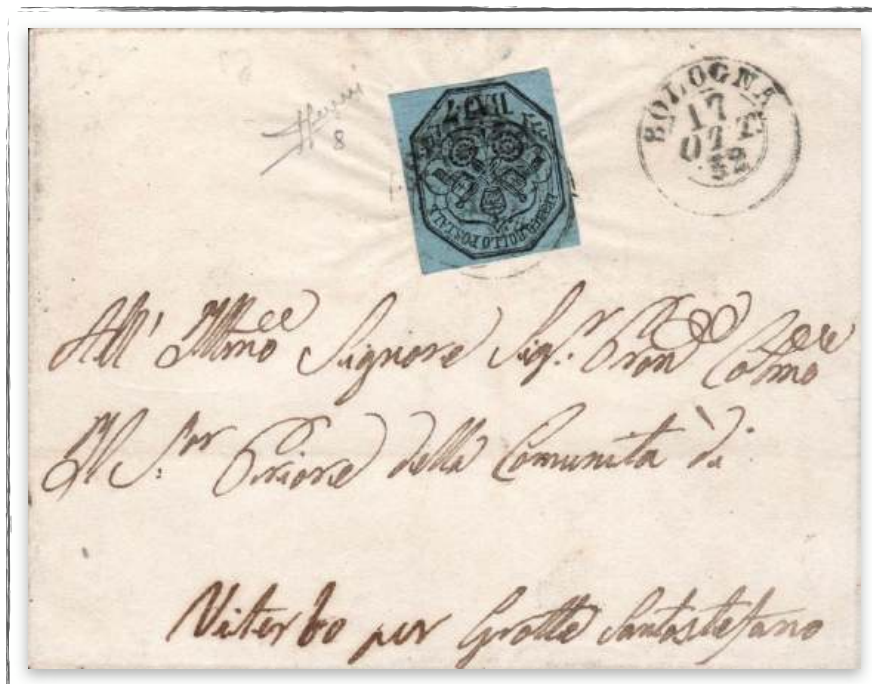 8
FRANCO BOLLO POSTALE
BAJ 7
BOLOGNA
17
OTT
52
All' Illmo Signore Sigr. Pron Colmo
Il Sor Priore della Comunità di
Viterbo per Grotte Santostefano